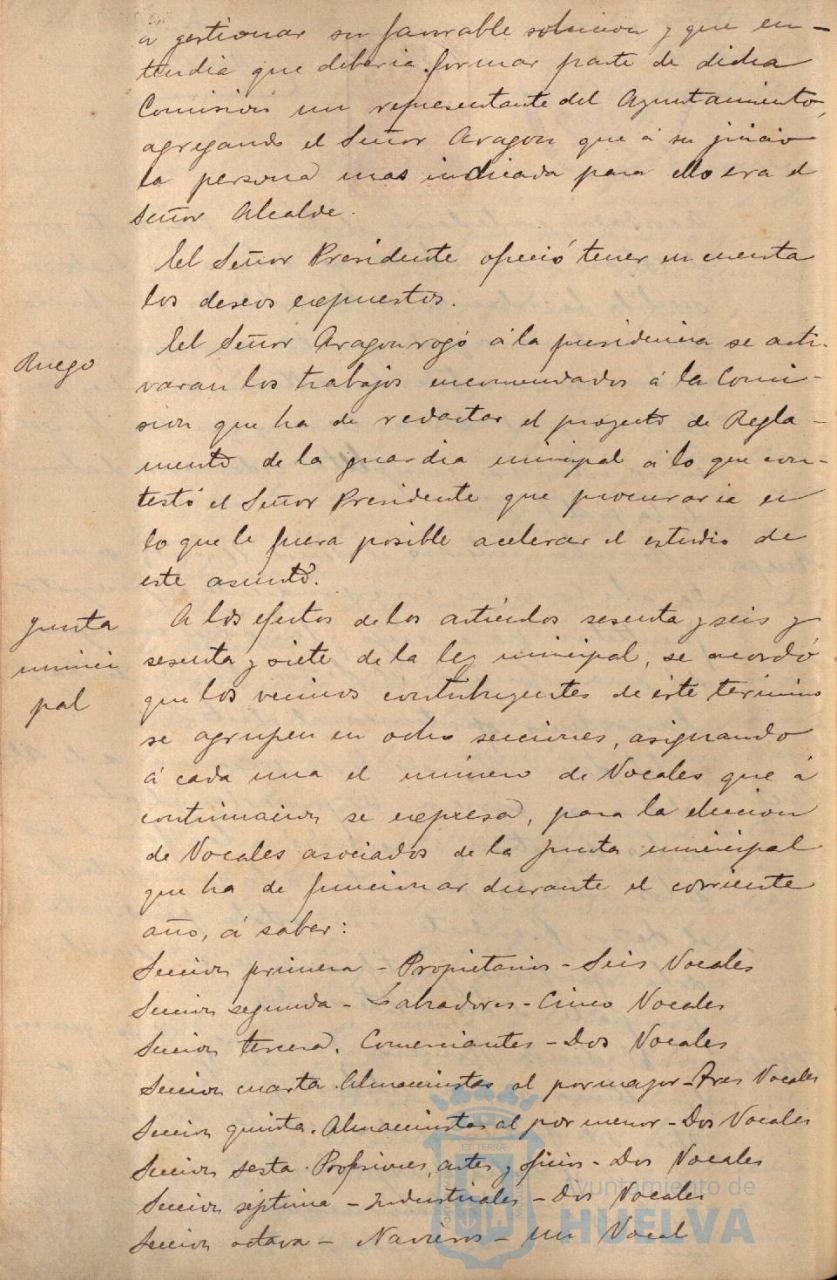 á gestionar su favorable solucion y que en-
tendia que deberia formar parte de dicha
Comision un representante del Ayuntamiento,
agregando el Señor Aragon que á su juicio
la persona mas indicada para ello era el
Señor Alcalde.
El Señor Presidente ofreció tener en cuenta
los deseos expuestos.
Ruego
El Señor Aragon rogó á la presidencia se acti-
varan los trabajos encomendados á la Comi-
sion que ha de redactar el proyecto de Regla-
mento de la guardia municipal á lo que con-
testó el Señor Presidente que procuraria en
lo que le fuera posible acelerar el estudio de
este asunto.
Junta
munici
pal
A los efectos de los artículos sesenta y seis y
sesenta y siete de la ley municipal, se acordó
que los vecinos contribuyentes de este término
se agrupen en ocho secciones, asignando
á cada una el número de Vocales que á
continuacion se expresa, para la eleccion
de Vocales asociados de la Junta municipal
que ha de funcionar durante el corriente
año, á saber:
Seccion primera - Propietarios - Seis Vocales
Seccion segunda - Labradores - Cinco Vocales
Seccion tercera. Comerciantes - Dos Vocales
Seccion cuarta. Almacenistas al por mayor - Tres Vocales
Seccion quinta. Almacenistas al por menor - Dos Vocales
Seccion sesta. Profesiones, artes y oficios - Dos Vocales
Seccion séptima - Industriales - Dos Vocales
Seccion octava - Navieros - un Vocal
Ayuntamiento de
HUELVA